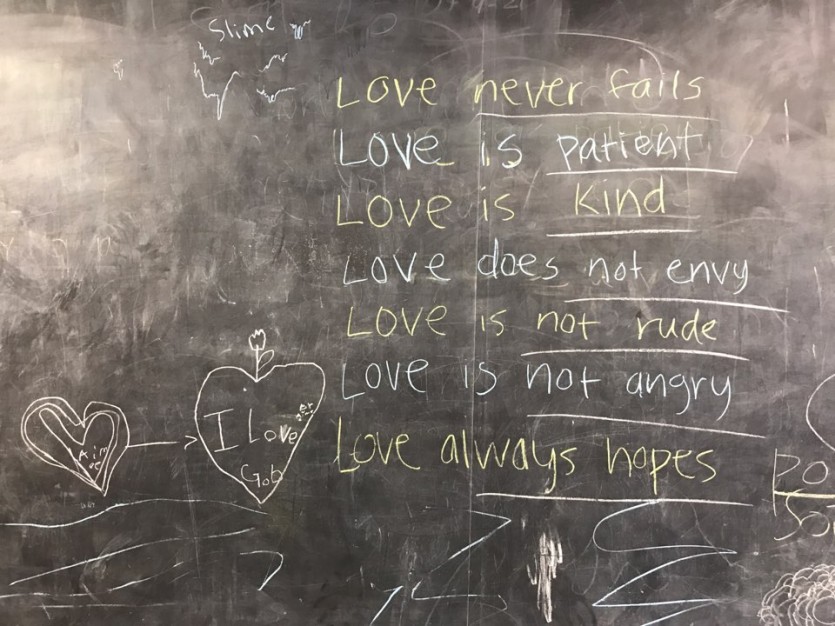 Slime
Love never fails
Love is patient
Love is Kind
Love does not envy
Love is not rude
Love is not angry
Love always hopes
I Love
Gob